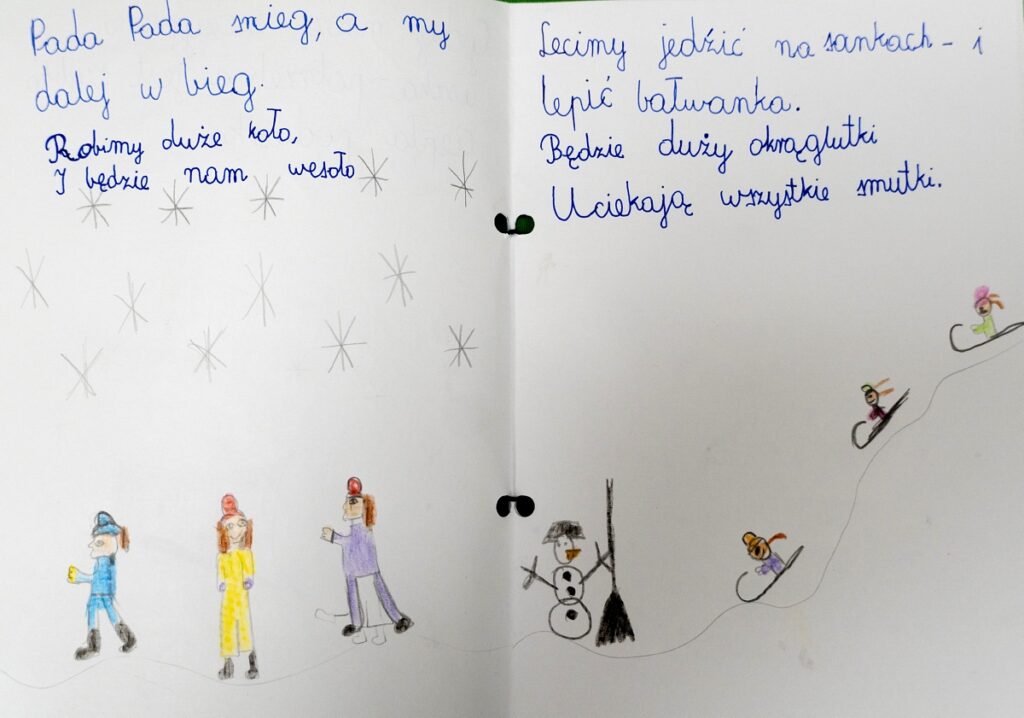 Pada Pada snieg, a my
dalej w bieg.
Robimy duże koło,
I będzie nam węsoło
Lecimy jedźić na sankach - i
lepić bałwanka.
Będzie duży okrąglutki
Uciekają wszystkie smutki.